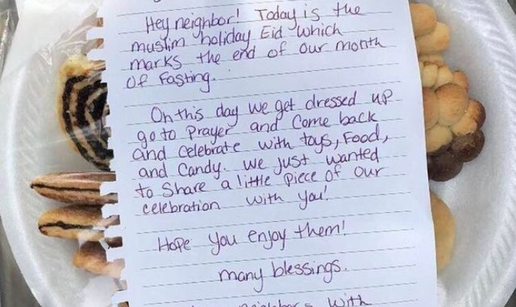 Hey neighbor! Today is the
muslim holiday Eid which
marks the end of our month
of Fasting.
On this day we get dressed up
go to Prayer and come back
and celebrate with toys, Food,
and Candy. We just wanted
to share a little piece of our
celebration with you!
Hope you enjoy them!
many blessings.
Neighbors with